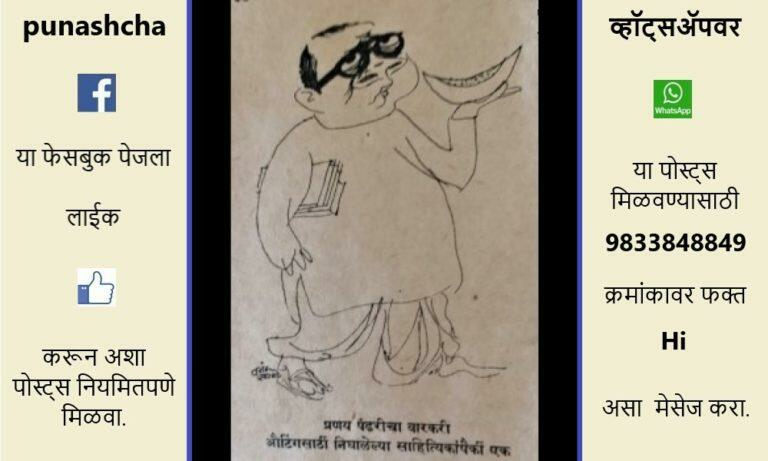 punashcha
या फेसबुक पेजला
लाईक
करून अशा
पोस्ट्स नियमितपणे
मिळवा.
प्रणय पंढरीचा वारकरी
औटिंगसाठी निघालेल्या साहित्यिकांपैकीं एक
व्हॉट्सॲपवर
WhatsApp
या पोस्ट्स
मिळवण्यासाठी
9833848849
क्रमांकावर फक्त
Hi
असा मेसेज करा.